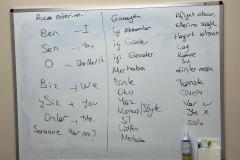 Rica ederim
Ben → I
Sen → You
O → She/He/It
Biz → We
Siz → You
Onlar → The
Sorunuz Var mı?
Günaydın
İyi Akşamlar
İyi Günler
İyi Geceler
Merhaba
Dinle
Oku
Yaz
Konuş / Söyle
Lütfen
Merhaba
Afiyet olsun
Ellerine sağlık
Hayırlı olsun
Çay
Kahve
Su
Tamam
Var ✓
Yok X